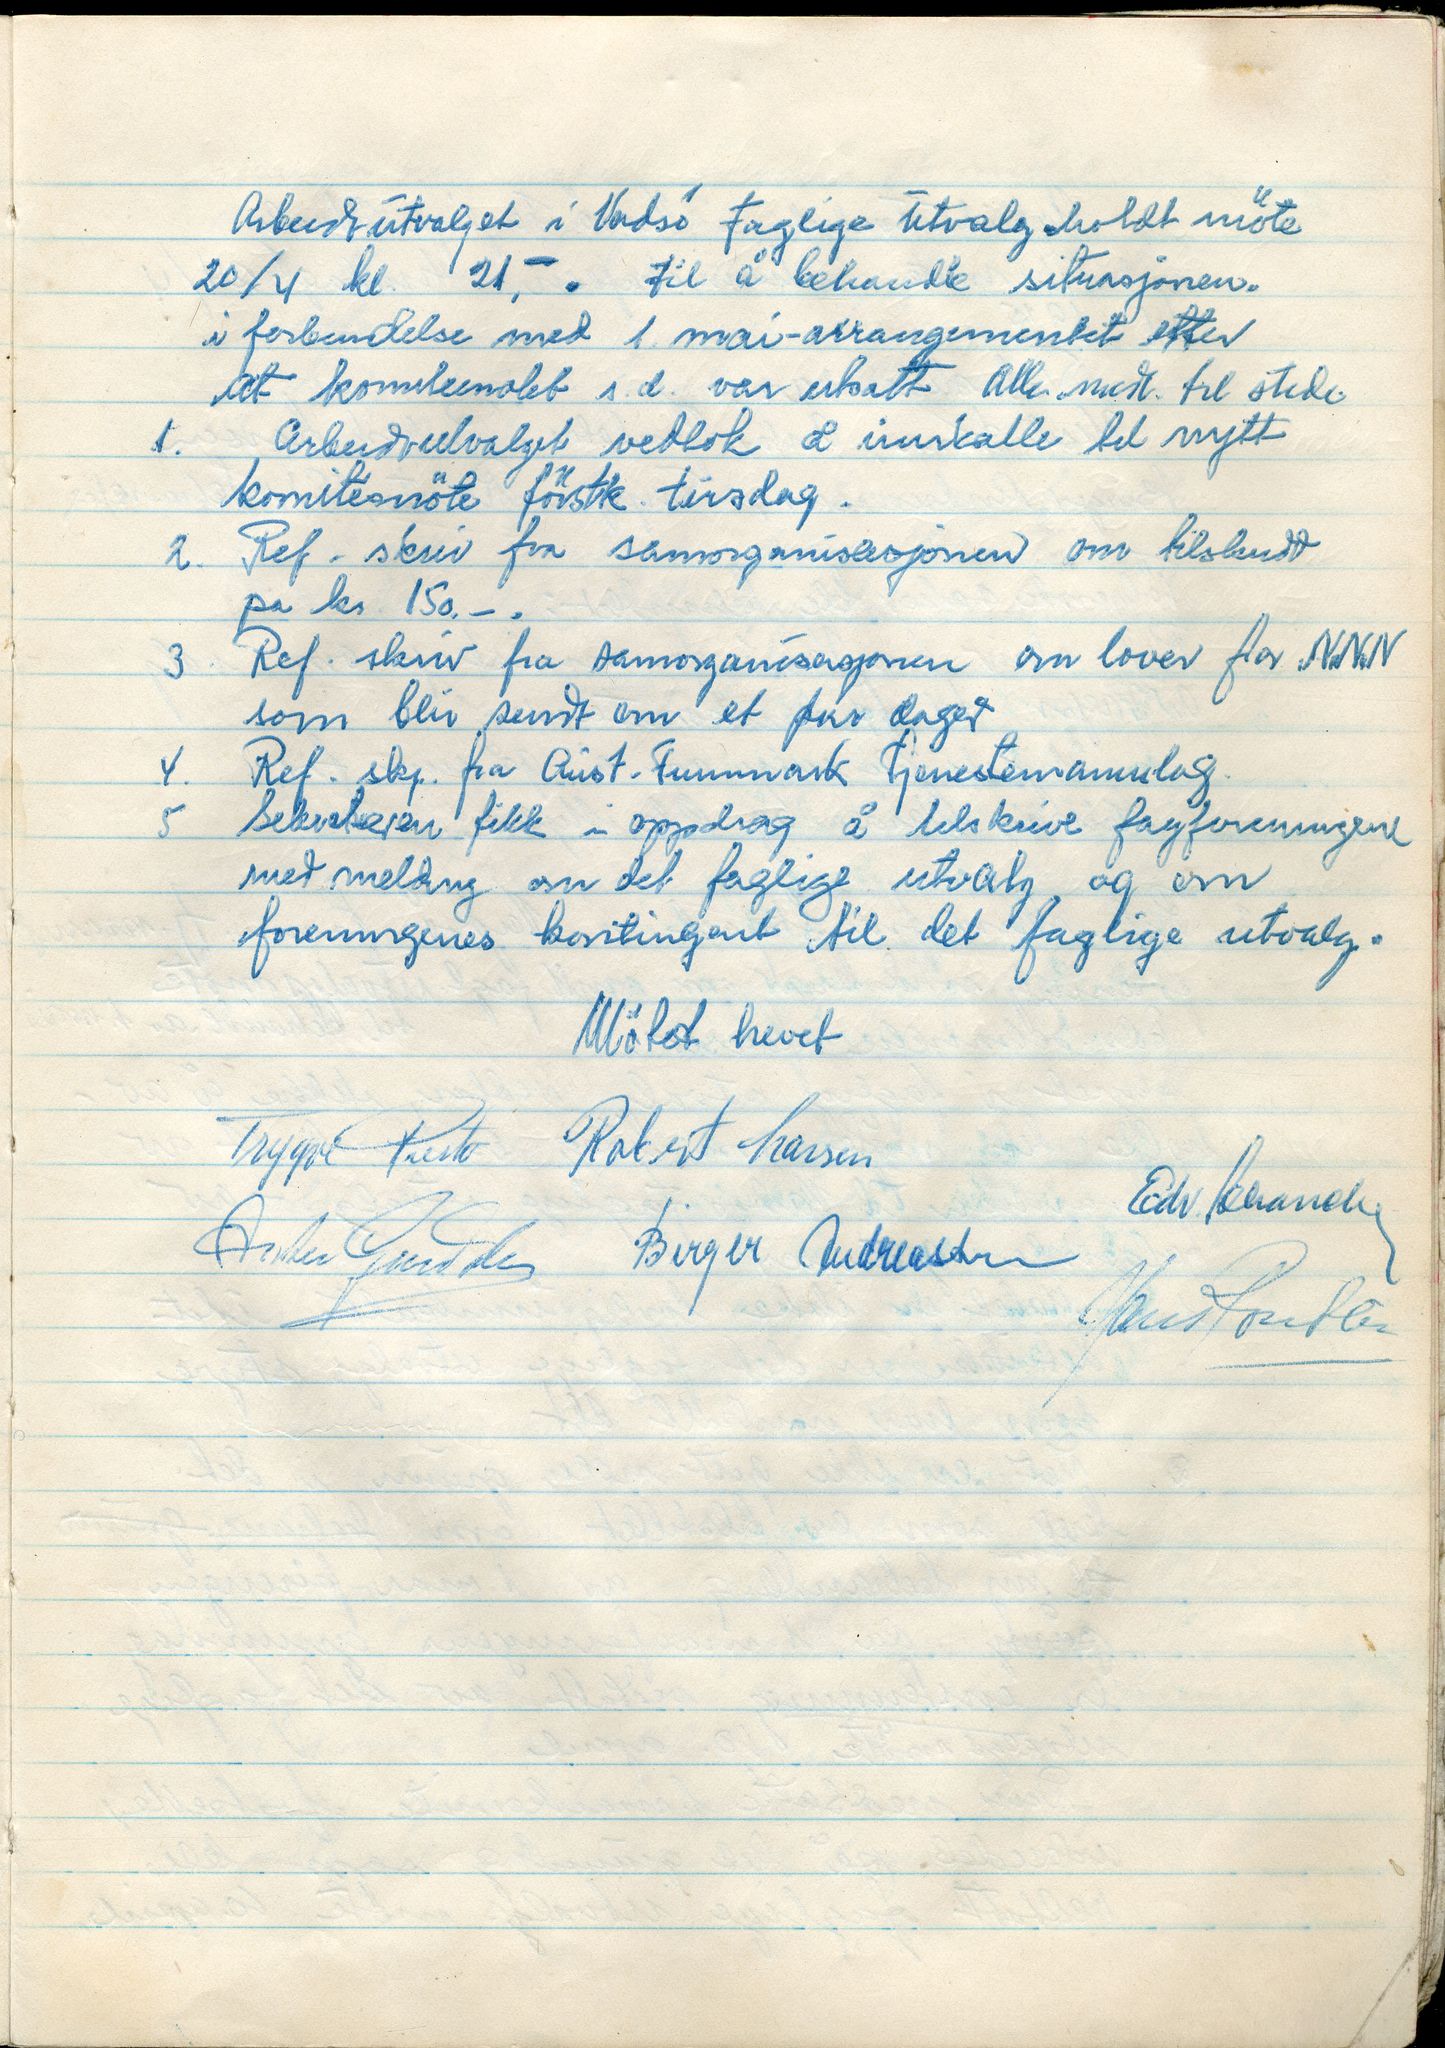 Arbeidsutvalget i Vadsö Faglige Utvalg holdt möte
20/4 kl. 21,-. til å behandle situasjonen.
i forbindelse med 1. mai-arrangementet etter
at komiteemötet s.d. var utsatt Alle medl. til stede
1. Arbeidsutvalget vedtok å innkalle til nytt
komitémöte förstk. tirsdag.
2. Ref. skriv fra samorganisasjonen om tilskudd
på kr. 150.-.
3. Ref. skriv fra samorganisasjonen om lover for N.N.N
som blir sendt om et par dager
4. Ref. skr. fra Aust-Finnmark Tjenestemannslag.
5 Sekretæren fikk i oppdrag å tilskrive fagforeningene
med melding om det faglige utvalg og om
foreningenes kontingent til det faglige utvalg.
Mötet hevet
Trygve Robert Larsen
Edv.
Birger Andreassen
Hans